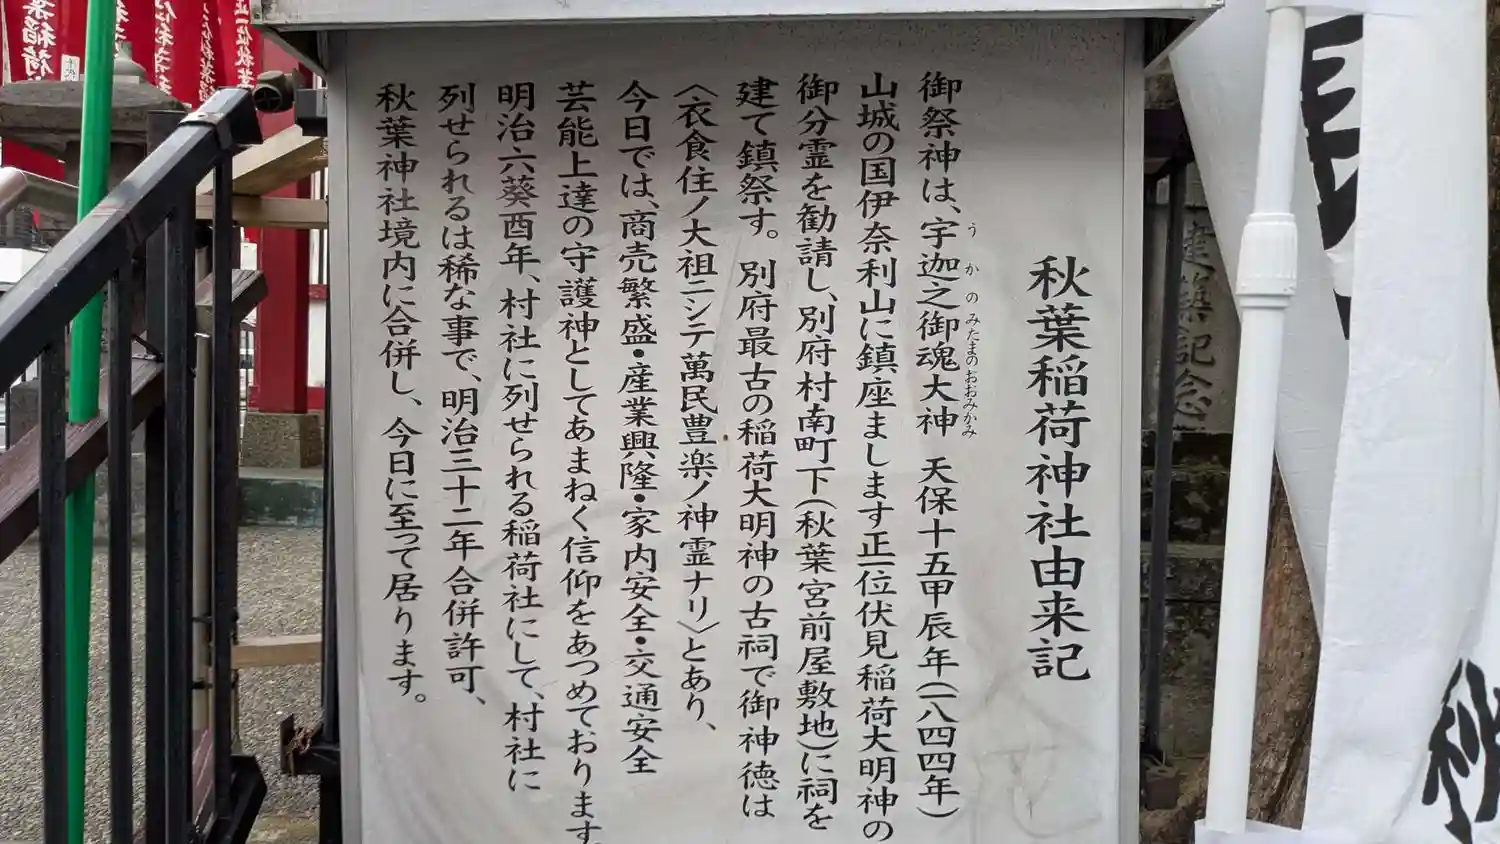 秋葉稲荷神社由来記
御祭神は、宇迦之御魂大神 天保十五甲辰年(一八四四年)
うかのみたまのおおみかみ
山城の国伊奈利山に鎮座まします正一位伏見稲荷大明神の
御分霊を勧請し、別府村南町下(秋葉宮前屋敷地)に祠を
建て鎮祭す。別府最古の稲荷大明神の古祠で御神徳は
〈衣食住ノ大祖ニシテ萬民豊楽ノ神霊ナリ〉とあり、
今日では、商売繁盛・産業興隆・家内安全・交通安全
芸能上達の守護神としてあまねく信仰をあつめております
明治六葵酉年、村社に列せられる稲荷社にして、村社に
列せられるは稀な事で、明治三十二年合併許可、
秋葉神社境内に合併し、今日に至って居ります。
建築記念
秋
葉稲荷
正一位秋葉